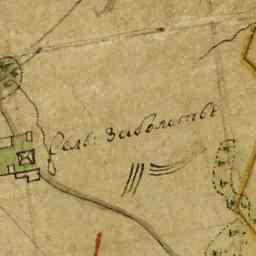 Сель: Заболотье